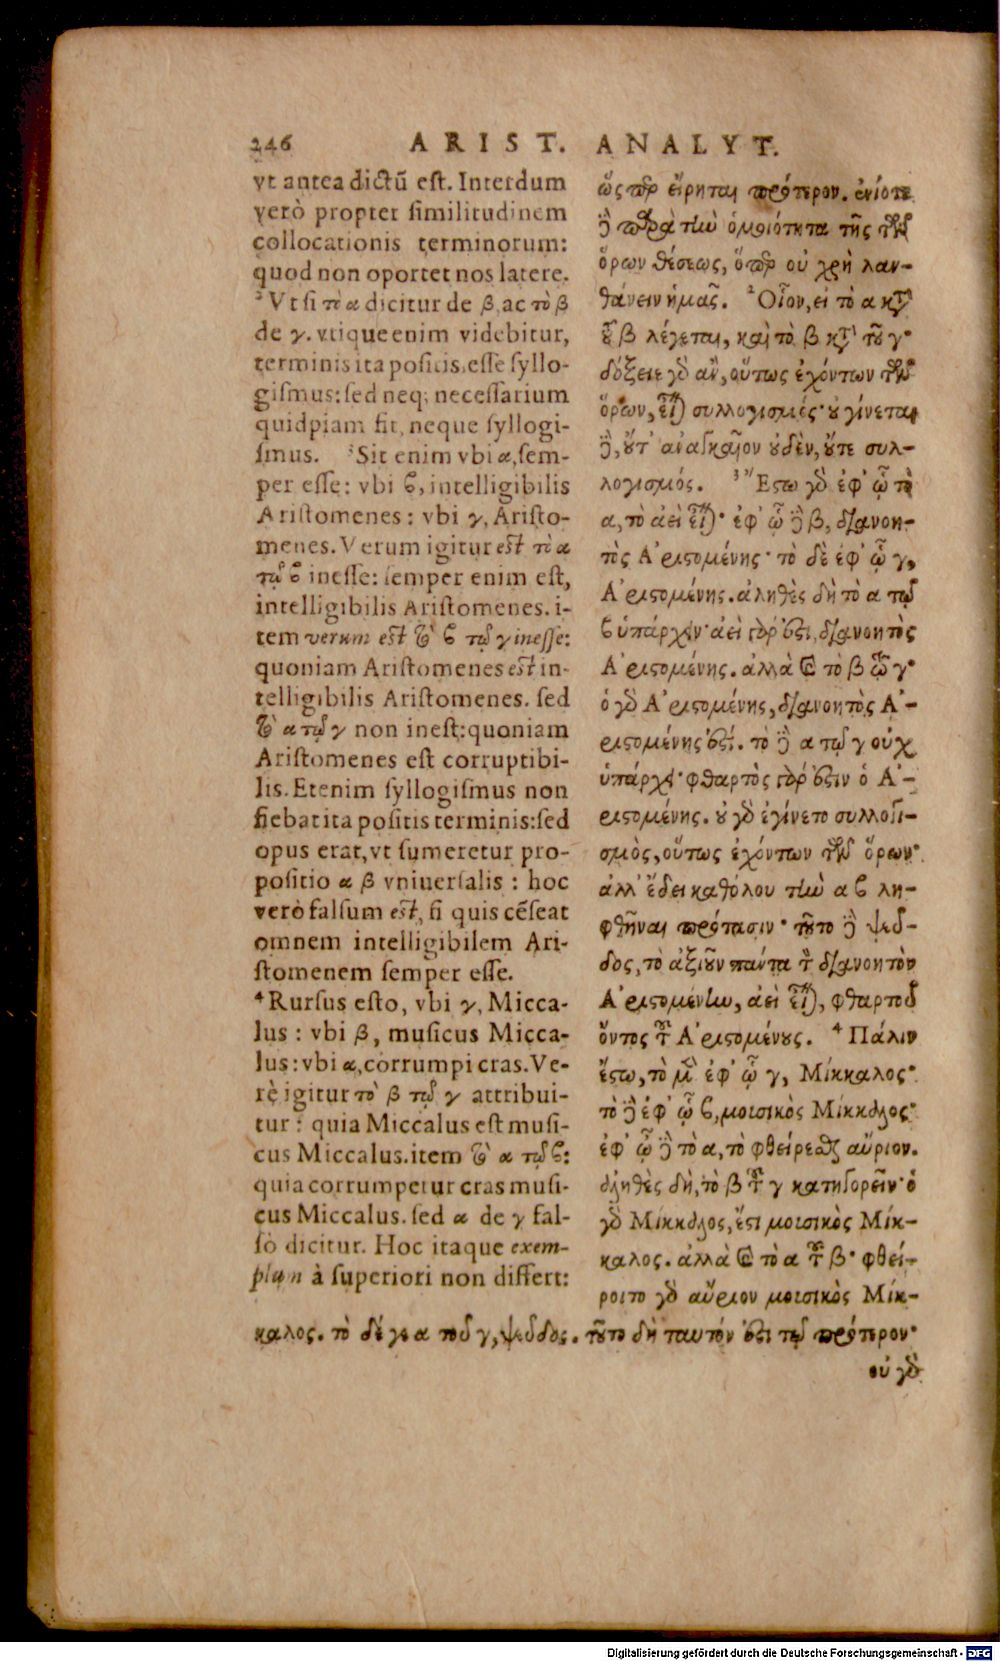 246 ARIST. ANALYT.
vt antea dictũ est. Interdum
verò propter similitudinem
collocationis terminorum:
quod non oportet nos latere.
² Vt si τὸ α dicitur de β, ac τὸ β
de γ. vtique enim videbitur,
terminis ita positis, esse syllo-
gismus: sed neq; necessarium
quidpiam fit, neque syllogi-
smus. ³ Sit enim vbi α, sem-
per esse: vbi ϐ, intelligibilis
Aristomenes: vbi γ, Aristo-
menes. Verum igitur est τὸ α
τῷ ϐ inesse: semper enim est,
intelligibilis Aristomenes. i-
tem verum est τὸ ϐ τῷ γ inesse:
quoniam Aristomenes est in-
telligibilis Aristomenes. sed
τὸ α τῷ γ non inest: quoniam
Aristomenes est corruptibi-
lis. Etenim syllogismus non
fiebat ita positis terminis: sed
opus erat, vt sumeretur pro-
positio α β vniuersalis: hoc
verò falsum est, si quis cẽseat
omnem intelligibilem Ari-
stomenem semper esse.
⁴ Rursus esto, vbi γ, Micca-
lus: vbi β, musicus Micca-
lus: vbi α, corrumpi cras. Ve-
rè igitur τὸ β τῷ γ attribui-
tur: quia Miccalus est musi-
cus Miccalus. item τὸ α τῷ ϐ:
quia corrumpetur cras musi-
cus Miccalus. sed α de γ fal-
sò dicitur. Hoc itaque exem-
plum à superiori non differt:
ὥσπερ εἴρηται πρότερον. ἐνίοτε
δὲ παρὰ τὴν ὁμοιότητα τῆς τῶν
ὅρων θέσεως, ὅπερ οὐ χρὴ λαν-
θάνειν ἡμᾶς. ² Οἷον, εἰ τὸ α κατὰ
τοῦ β λέγεται, καὶ τὸ β κατὰ τοῦ γ·
δόξειε γὰρ ἂν, οὕτως ἐχόντων τῶν
ὅρων, εἶναι συλλογισμός· οὐ γίνεται
δὲ, οὔτ' ἀναγκαῖον οὐδὲν, οὔτε συλ-
λογισμός. ³ Ἔστω γὰρ ἐφ' ᾧ τὸ
α, τὸ ἀεὶ εἶναι· ἐφ' ᾧ δὲ β, διανοη-
τὸς Ἀριστομένης· τὸ δὲ ἐφ' ᾧ γ,
Ἀριστομένης. ἀληθὲς δὴ τὸ α τῷ
ϐ ὑπάρχειν· ἀεὶ γάρ ἐστι, διανοητὸς
Ἀριστομένης. ἀλλὰ καὶ τὸ β τῷ γ·
ὁ γὰρ Ἀριστομένης, διανοητὸς Ἀ-
ριστομένης ἐστί. τὸ δὲ α τῷ γ οὐχ
ὑπάρχει· φθαρτὸς γάρ ἐστιν ὁ Ἀ-
ριστομένης. οὐ γὰρ ἐγίνετο συλλογι-
σμὸς, οὕτως ἐχόντων τῶν ὅρων·
ἀλλ' ἔδει καθόλου τὴν α ϐ λη-
φθῆναι πρότασιν· τοῦτο δὲ ψεῦ-
δος, τὸ ἀξιοῦν πάντα τὸν διανοητὸν
Ἀριστομένην, ἀεὶ εἶναι, φθαρτοῦ
ὄντος τοῦ Ἀριστομένους. ⁴ Πάλιν
ἔστω, τὸ μὲν ἐφ' ᾧ γ, Μίκκαλος·
τὸ δὲ ἐφ' ᾧ ϐ, μουσικὸς Μίκκαλος·
ἐφ' ᾧ δὲ τὸ α, τὸ φθείρεσθαι αὔριον.
ἀληθὲς δὴ, τὸ β τοῦ γ κατηγορεῖν· ὁ
γὰρ Μίκκαλος, ἔστι μουσικὸς Μίκ-
καλος. ἀλλὰ καὶ τὸ α τοῦ β· φθεί-
ροιτο γὰρ αὔριον μουσικὸς Μίκ-
καλος. τὸ δέ γε α τοῦ γ, ψεῦδος. τοῦτο δὴ ταυτόν ἐστι τῷ πρότερον·
οὐ γὰρ
Digitalisierung gefördert durch die Deutsche Forschungsgemeinschaft - DFG